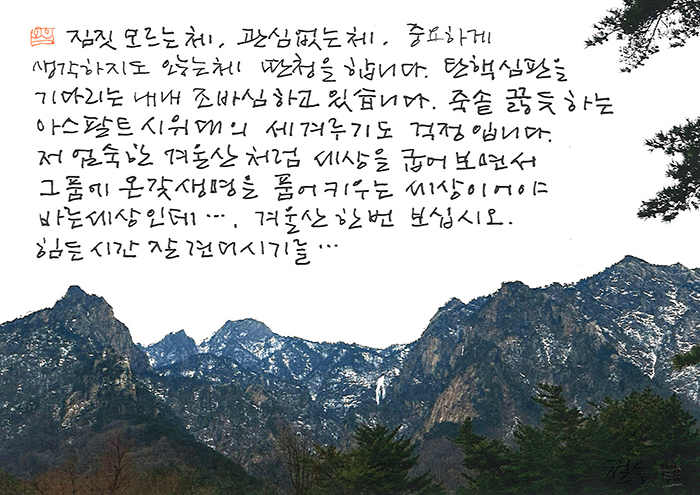 짐짓 모르는체, 관심없는체, 중요하게
생각하지도 않는체 딴청을 합니다. 탄핵심판을
기다리는 내내 조바심하고 있습니다. 죽솥 끓듯 하는
아스팔트 시위대의 세겨루기도 걱정입니다.
저 엄숙한 겨울산처럼 세상을 굽어보면서
그품에 온갖생명을 품어 키우는 세상이어야
바른세상인데 …. 겨울산 한번 보십시오.
힘든 시간 잘 견뎌시기를 …